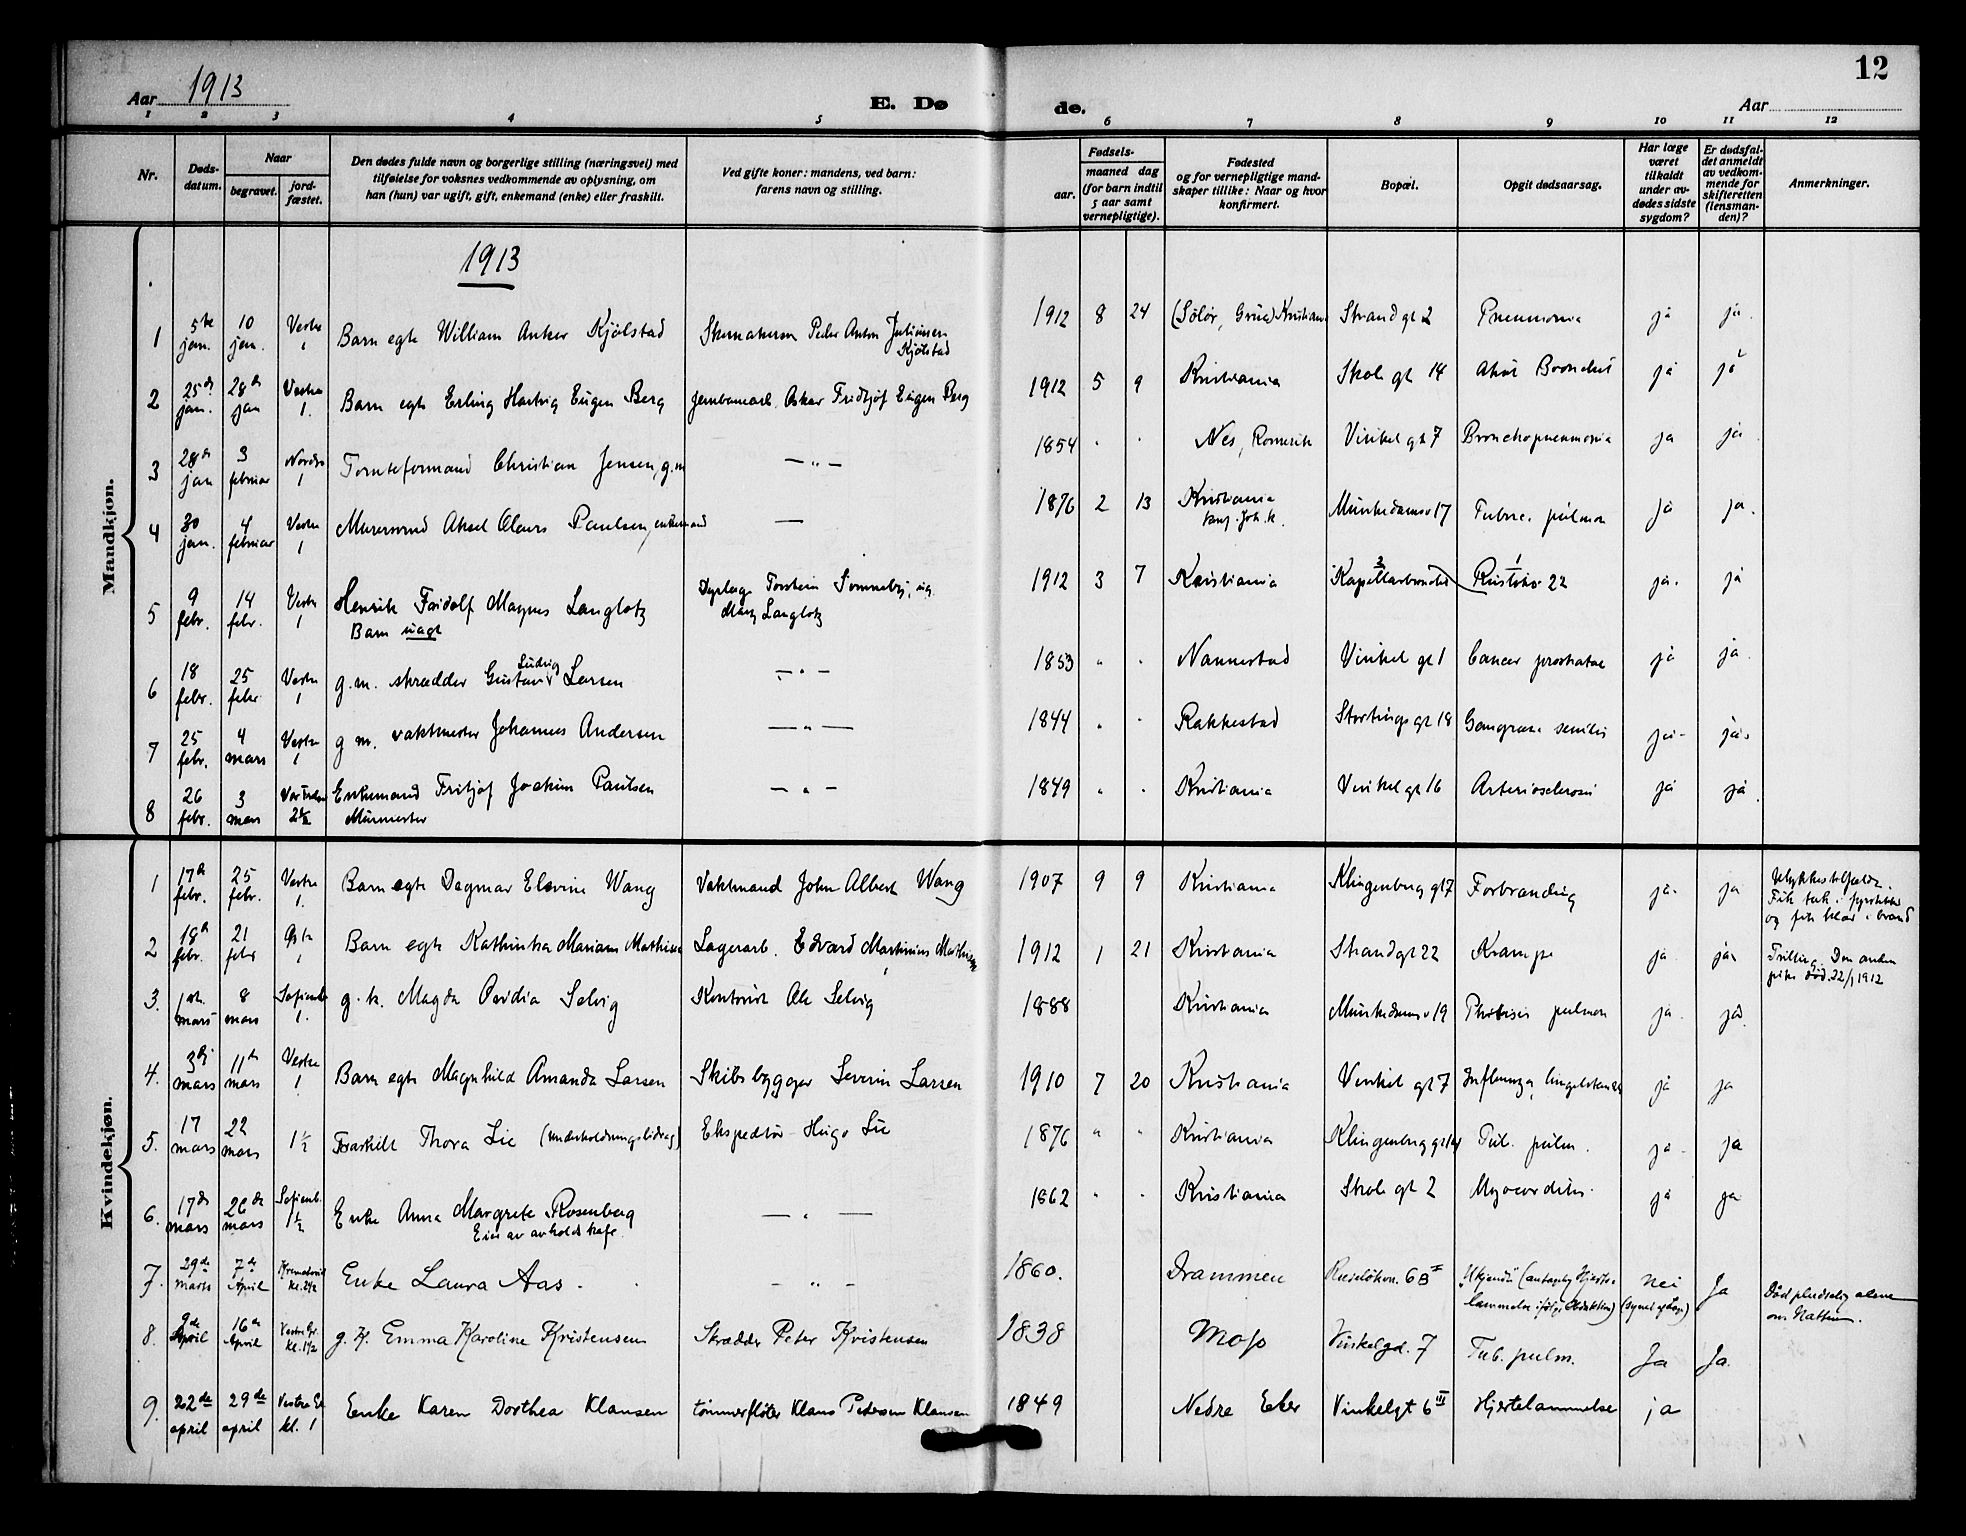 12
Aar 1913
E. Dø
de.
Aar
1 2 3 4 5 6 7 8 9 10 11 12
Nr.
Døds-
datum.
Naar
begravet.
jord-
fæstet.
Den dødes fulde navn og borgerlige stilling (næringsvei) med
tilføielse for voksnes vedkommende av oplysning, om
han (hun) var ugift, gift, enkemand (enke) eller fraskilt.
Ved gifte koner: mandens, ved barn:
farens navn og stilling.
Fødsels-
aar.
maaned dag
(for barn indtil
5 aar samt
vernepligtige).
Fødested
og for vernepligtige mand-
skaper tillike: Naar og hvor
konfirmert.
Bopæl.
Opgit dødsaarsag.
Har læge
været
tilkaldt
under av-
dødes sidste
sygdom?
Er dødsfal-
det anmeldt
av vedkom-
mende for
skifteretten
(lensman-
den)?
Anmerkninger.
1913
Mandkjøn.
1 5te jan. 10 jan. Vestre 1 Barn egte William Anker Kjølstad Peder Anton Juliussen Kjølstad 1912 8 24 (Solør, Grue) Kristiania Strand gt 2 Pneumonia ja ja.
2 25de jan. 28de jan Vestre 1. Barn egte Erling Hartvig Eugen Berg Jernbanearb. Oskar Fridtjof Eugen Berg 1912 5 9 Kristiania Skole gt 14 Akut Bronchit ja ja
3 28de jan 3 februar Nordre 1 Tomteformand Christian Jensen, g.m — „ — 1854 Nes, Romerik Vinkel gt 7 Bronchopneumonia ja ja
4 30 jan. 4 februar Vestre 1 Murersvend Aksel Olaus Paulsen, enkemand — 1876 2 13 Kristiania Joh. k. Munkedamsv 17 Tuberc. pulmon ja ja.
5 9 febr. 14 febr. Vestre 1 Henrik Fridolf Magnus Langlotz
Barn uegte Torstein Sommeby, ug. Langlotz 1912 3 7 Kristiania 22 ja. ja
6 18 febr. 25 febr Vestre 1 g.m. skrædder Gustav Ludvig Larsen — „ — 1853 Nannestad Vinkel gt 1 Cancer prostatae ja ja.
7 25 febr. 4 mars Vestre 1 g m. vaktmester Johannes Andersen — „ — 1844 Rakkestad Stortings gt 18 Gangræna senilis ja ja.
8 26 febr. 3 mars 2½ Enkemand Fritjof Jochim Paulsen
Murmester — „ — 1849 Kristiania Vinkel gt 16 Arteriosclerosis ja ja.
Kvindekjøn.
1 17de febr. 25 febr. Vestre 1. Barn egte Dagmar Elevine Wang Vaktmand John Albert Wang 1907 9 9 Kristiania Klingenberg gt 7 Forbrænding ja. ja Ulykkestilfælde.
Fik tak i fyrstikker
og fik klær i brand
2 18de febr. 21 febr 1 Barn egte Kathinka Mariam Mathisen Lagerarb. Edvard Martinius Mathisen 1912 1 21 Kristiania Strandgt 22 Krampe ja ja Tvilling. Den anden
pike død 22/1 1912
3. 1ste mars 8 mars Sofienb 1. g. k. Magda Ovidia Selvig Kontorist Ole Selvig 1888 Kristiania Munkedamsv 19 Phthisis pulmon ja ja.
4. 3de mars 11te mars Vestre 1 Barn egte Magnhild Amanda Larsen Skibsbygger Severin Larsen 1910 7 20 Kristiania Vinkel gt 7 Influenza, ja ja
5. 17 mars 22 mars 1½ Fraskilt Thora Lie (underholdningsbidrag) Ekspeditør Hugo Lie 1876 Kristiania Klingenberg gt Tub. pulm. ja ja
6. 17de mars 26de mars Sofienb. 1½ Enke Anna Margrete Rosenberg
Eier av avholdskafe — „ — 1862 Kristiania Skole gt 2 Myocarditis. ja ja
7. 29de mars 7de April Krematoriet kl. 2½ Enke Laura Aas. — „ — 1860. Drammen Ruseløkv. 6B II Ukjendt (antagelig Hjerte-
lammelse ifølge Obduktion) nei
(synet af Læge) Ja Død pludselig alene
om Natten.
8. 9de April 16de April Vestre Gr. kl. 1½ g. k. Emma Karoline Kristensen Skrædder Peter Kristensen 1838 Moss Vinkelgd. 7 Tub. pulm. Ja Ja.
9. 22de april 29de april Vestre Gr kl. 1 Enke Karen Dorthea Klausen tømmerfløter Klaus Pedersen Klausen 1849 Nedre Eker Vinkelgt 6 III Hjertelammelse ja